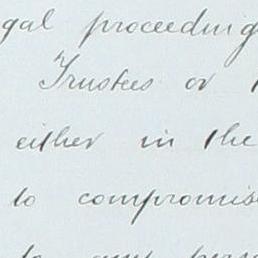 gal proceeding
Trustees or
either in the
to compromis
to any perso